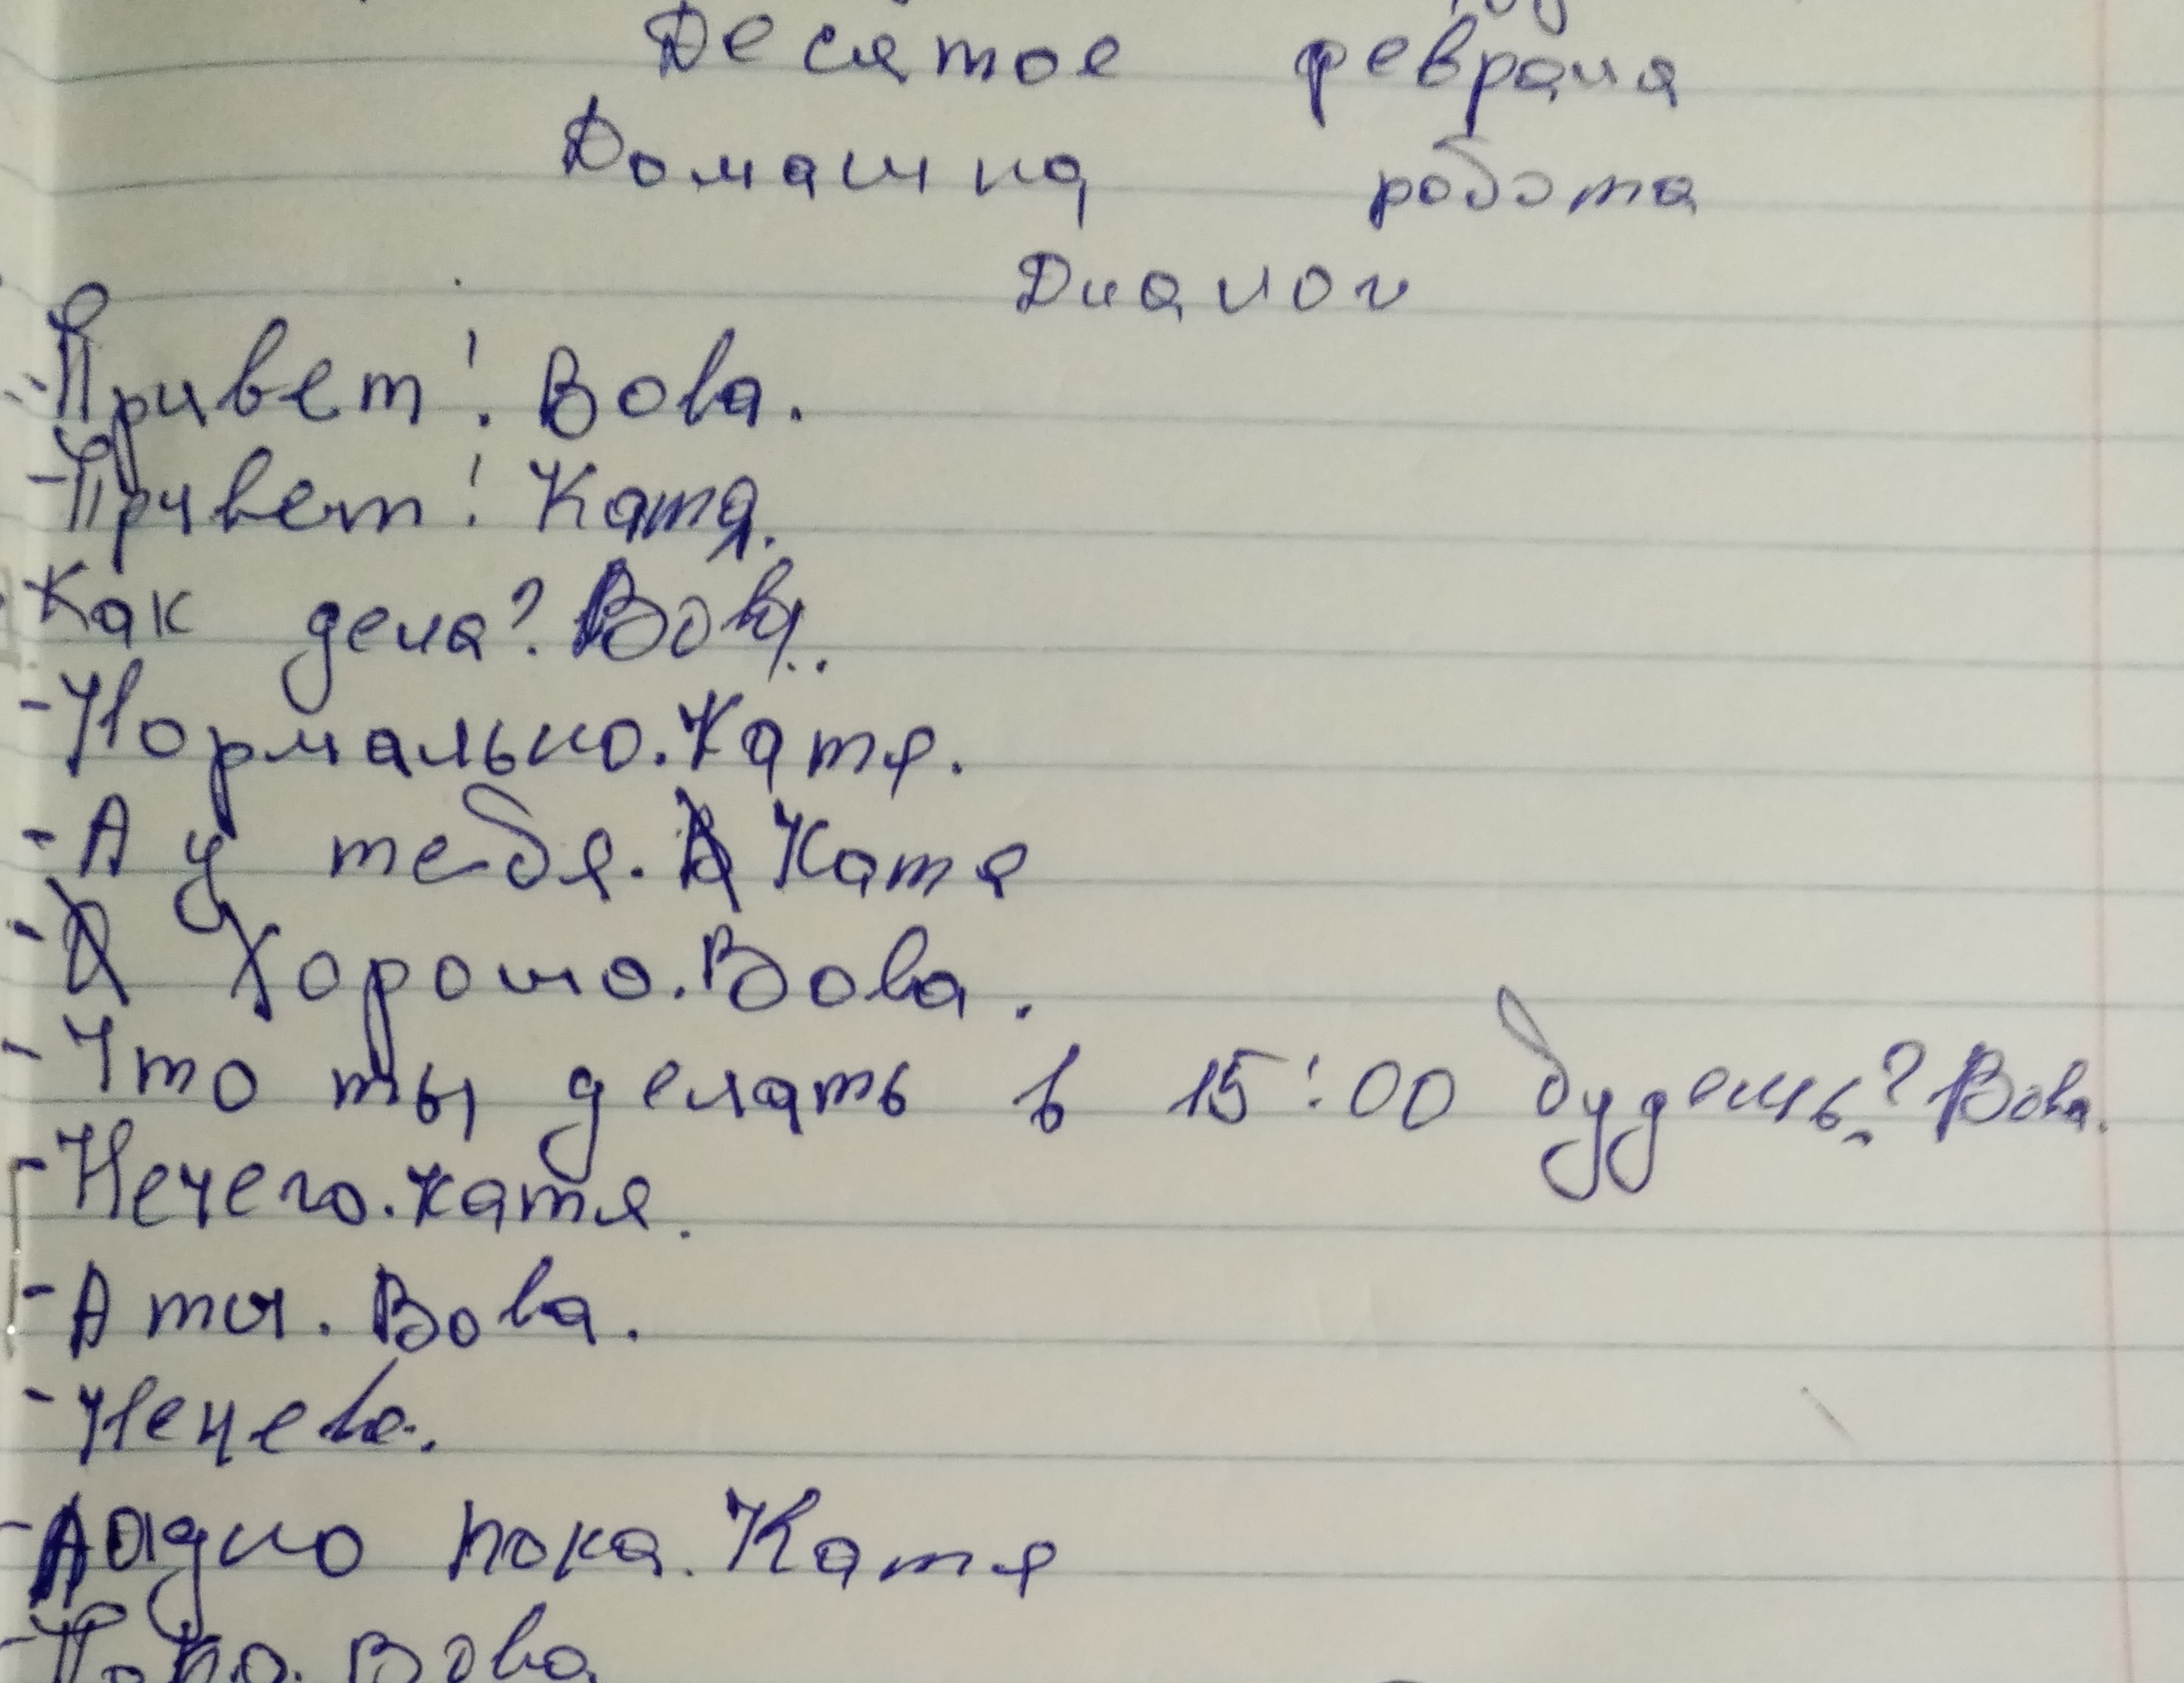 Десятое февраля
Домашня робота
Диалог
-Привет! Вова.
-Привет! Катя.
Как дела? Вова.
-Нормально. Катя.
-А у тебя. Катя
- Хорошо. Вова.
-Что ты делать в 15:00 будешь? Вова.
-Нечего. Катя.
-А ты. Вова.
-Нечево.
-Ладно пока. Катя
-Пока. Вова